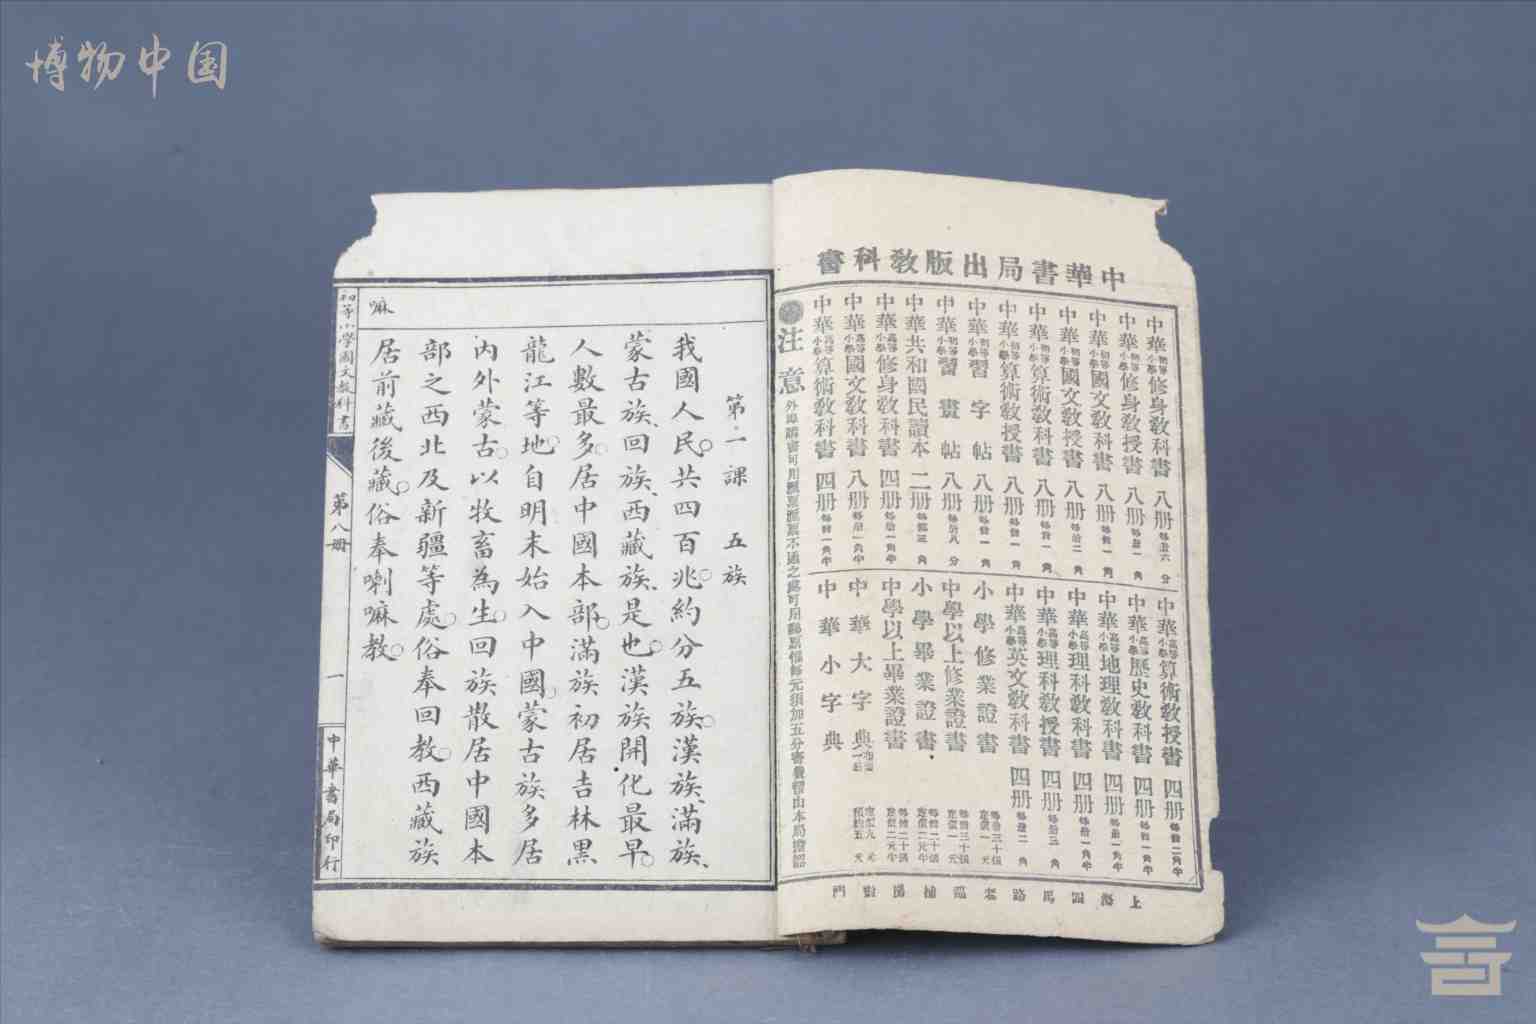 博物中国
中華書局出版教科書
中華初等小學修身教科書 八册 每册六分
中華初等小學修身教授書 八册 每册一角
中華初等小學國文教科書 八册 每册一角
中華初等小學國文教授書 八册 每册二角
中華初等小學算術教科書 八册 每册一角
中華初等小學算術教授書 八册
中華初等小學習字帖 八册 每册一角
中華初等小學習畫帖 八册 每册八分
中華共和國民讀本 二册
中華高等小學修身教科書 四册 每册一角半
中華高等小學國文教科書 八册 每册一角半
中華高等小學算術教科書 四册 每册一角半
中華高等小學算術教授書 四册 每册二角半
中華高等小學歷史教科書 四册 每册一角半
中華高等小學地理教科書 四册 每册一角半
中華高等小學理科教科書 四册 每册一角半
中華高等小學理科教授書 四册 每册三角
中華高等小學英文教科書 四册 每册二角
小學修業證書 每冊三十張 定價一元
中學以上修業證書 每冊三十張 定價一元
小學畢業證書 每冊二十張 定價二元半
中學以上畢業證書 每冊二十張 定價二元半
中華大字典 定價九元 預約五元
中華小字典
注意
上海四馬路老巡捕房對門
第一課 五族
我國人民。共四百兆。約分五族。漢族、滿族、
蒙古族、回族、西藏族、是也。漢族開化最早。
人數最多。居中國本部。滿族初居吉林黑
龍江等地。自明末始入中國。蒙古族多居
內外蒙古。以牧畜為生。回族散居中國本
部之西北及新疆等處。俗奉回教。西藏族
居前藏後藏。俗奉喇嘛教。
嘛
初等小學國文教科書
第八册
一
中華書局印行